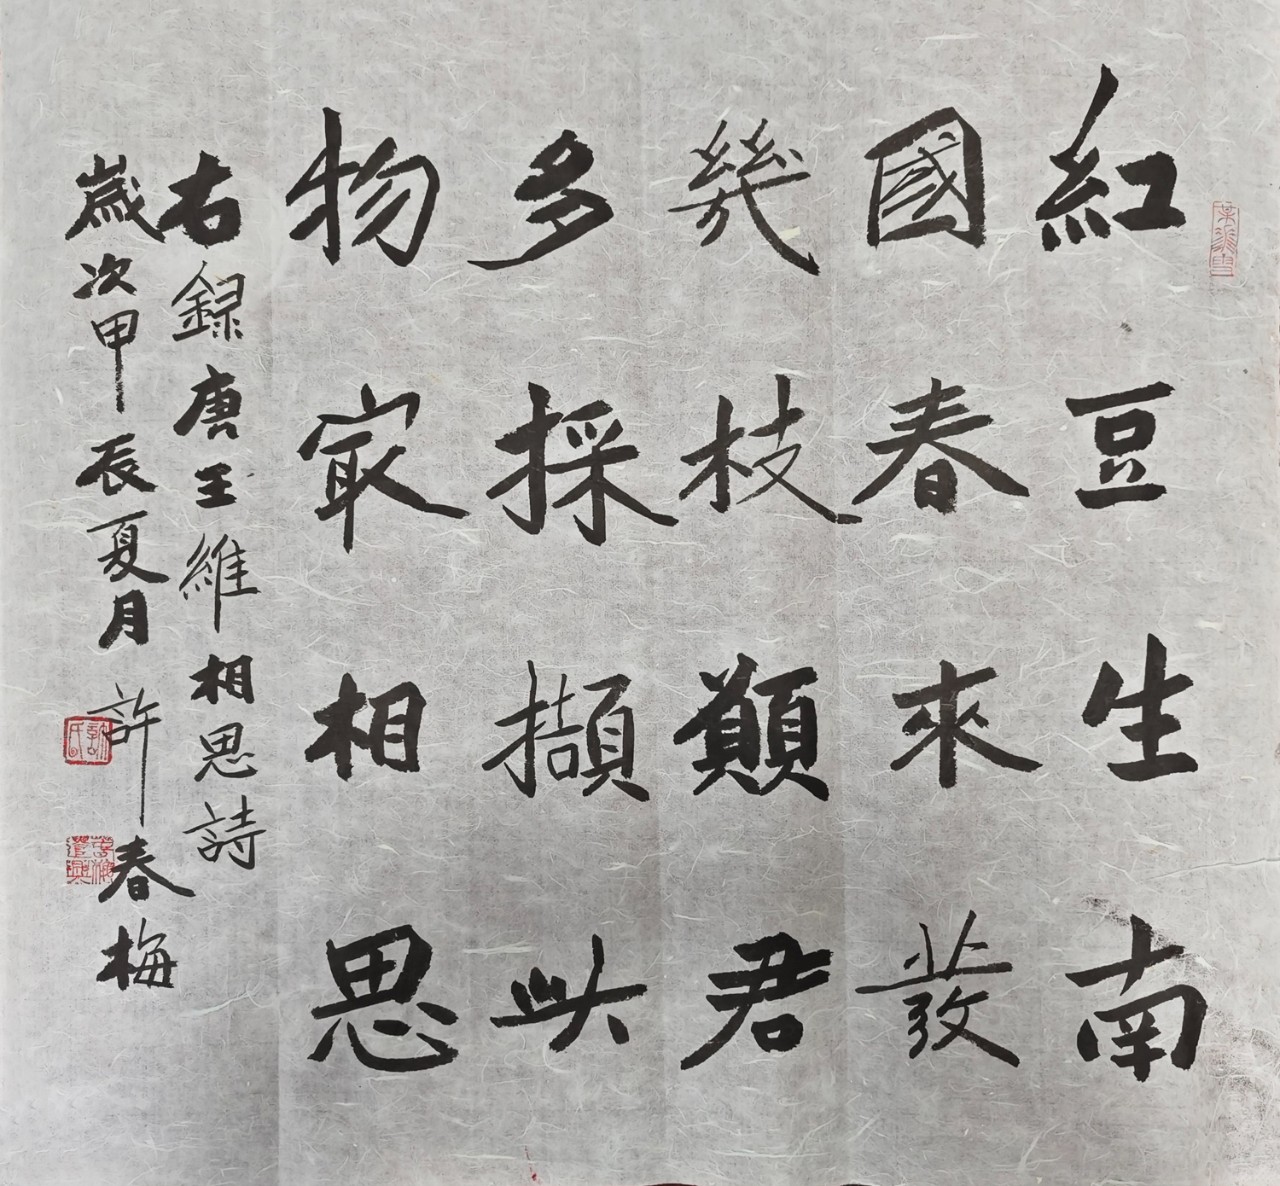 紅豆生南
國春來發
幾枝願君
多採擷此
物冣相思
右録唐王維相思詩
歲次甲辰夏月許春梅
許氏